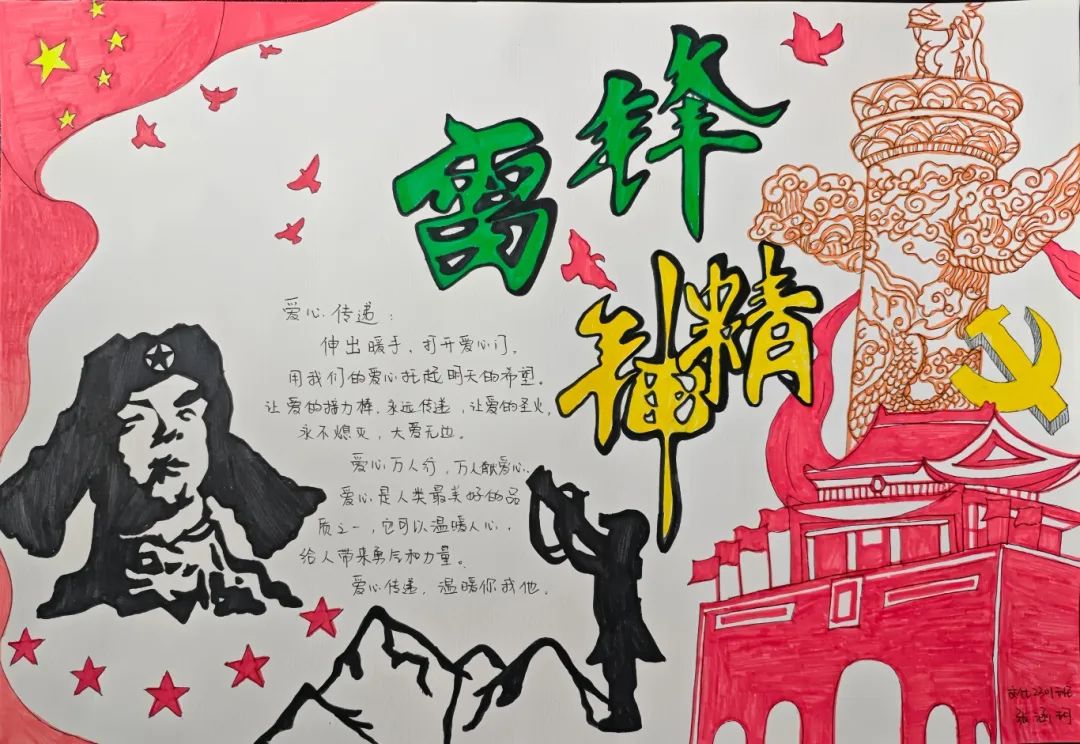 雷锋
精神
爱心传递:
伸出暖手,打开爱心门。
用我们的爱心托起明天的希望。
让爱的接力棒,永远传递,让爱的圣火,
永不熄灭,大爱无边。
爱心万人行,万人献爱心。
爱心是人类最美好的品
质之一,它可以温暖人心,
给人带来勇气和力量。
爱心传递,温暖你我他。
2301班
张涵